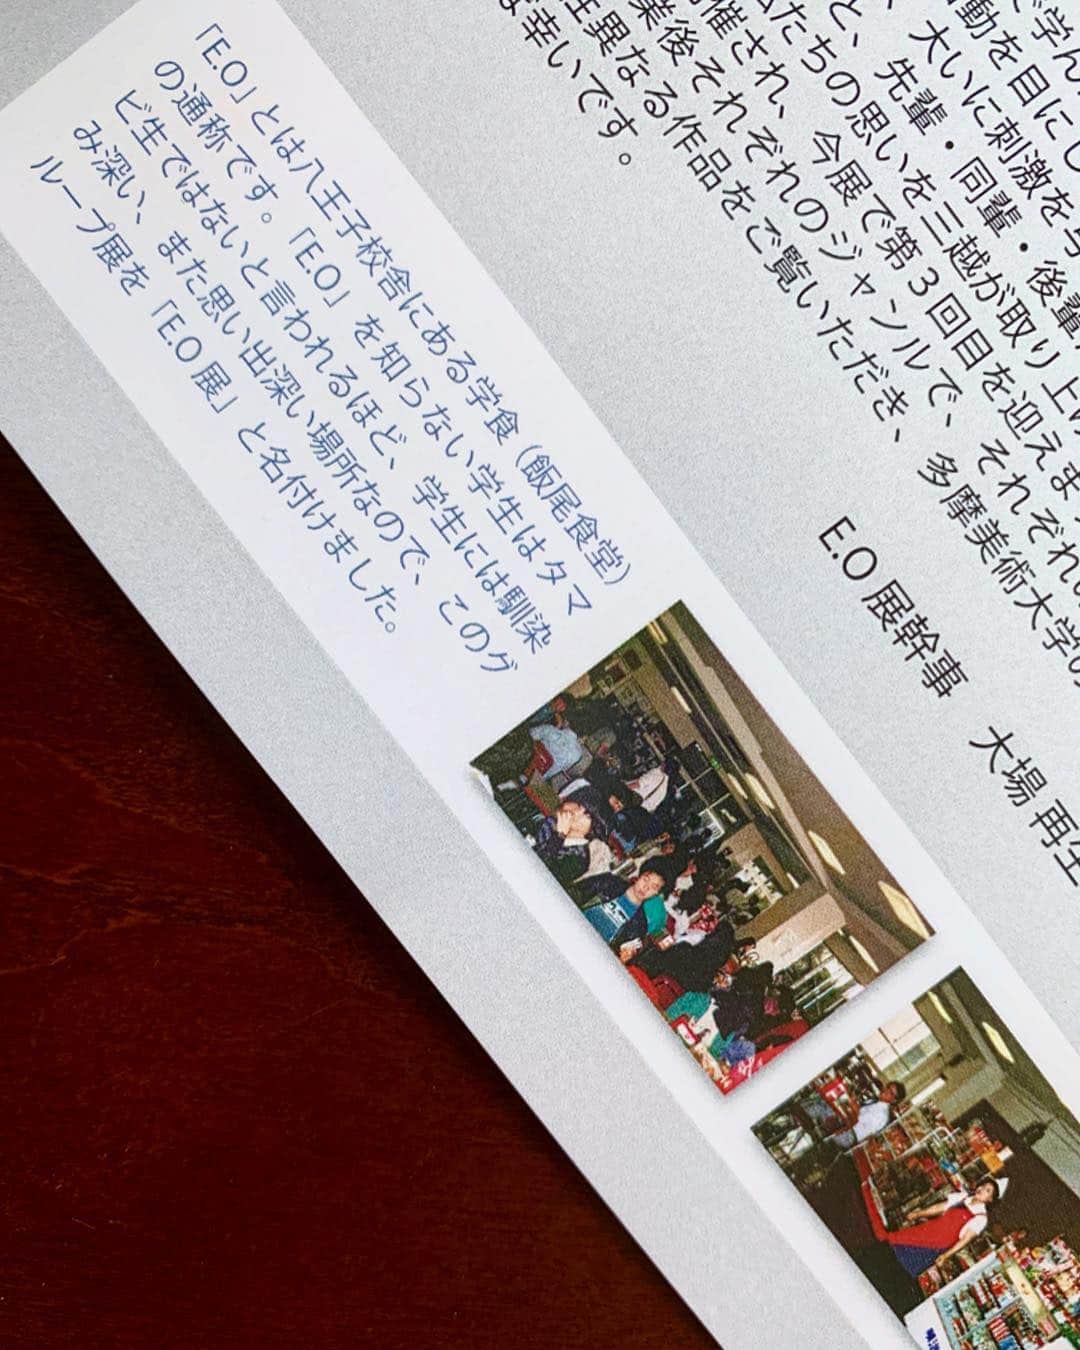 で学ん
動を目にし
大いに刺激を与
と、先輩・同輩・後輩
たちの思いを三越が取り上げ
催され、今展で第3回目を迎えま
業後それぞれのジャンルで、それぞれ
異なる作品をご覧いただき、多摩美術大学の
幸いです。
E.O展幹事　大場 再生
「E.O」とは八王子校舎にある学食（飯尾食堂）
の通称です。「E.O」を知らない学生はタマ
ビ生ではないと言われるほど、学生には馴染
み深い、また思い出深い場所なので、このグ
ループ展を「E.O展」と名付けました。